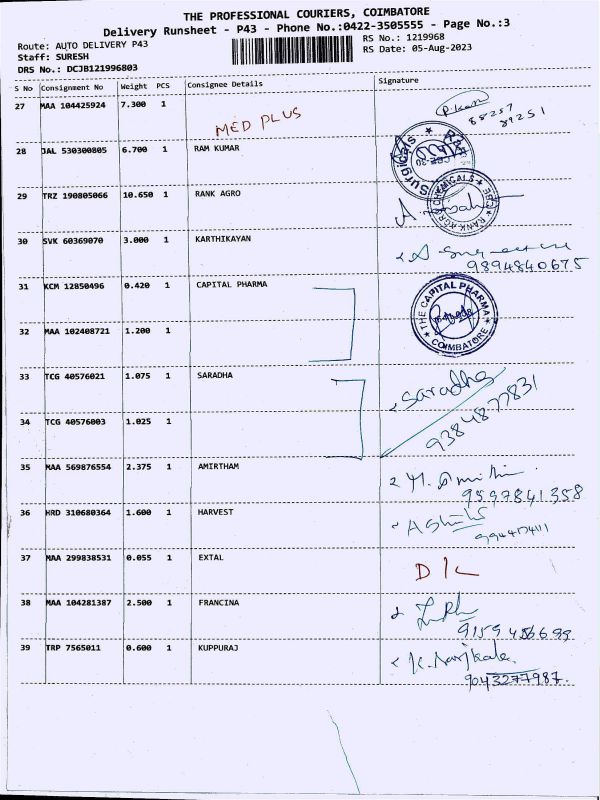 THE PROFESSIONAL COURIERS, COIMBATORE
Delivery Runsheet - P43 - Phone No.:0422-3505555 - Page No.:3
Route: AUTO DELIVERY P43
RS No.: 1219968
Staff: SURESH
RS Date: 05-Aug-2023
DRS No.: DCJB121996803
S No Consignment No Weight PCS Consignee Details Signature
27 MAA 104425924 7.300 1
MED PLUS
88257
89251
28 JAL 530300805 6.700 1 RAM KUMAR
Surgicals
29 TRZ 190805066 10.650 1 RANK AGRO
CHEMICALS RANK AGRO CBE
30 SVK 60369070 3.000 1 KARTHIKAYAN
9894840675
31 KCM 12850496 0.420 1 CAPITAL PHARMA
THE CAPITAL PHARMA COIMBATORE
32 MAA 102408721 1.200 1
33 TCG 40576021 1.075 1 SARADHA
Saradha
9384877831
34 TCG 40576003 1.025 1
35 MAA 569876554 2.375 1 AMIRTHAM
9597841358
36 HRD 310680364 1.600 1 HARVEST
37 MAA 299838531 0.055 1 EXTAL
D/L
38 MAA 104281387 2.500 1 FRANCINA
9159456699
39 TRP 7565011 0.600 1 KUPPURAJ
9043277987.